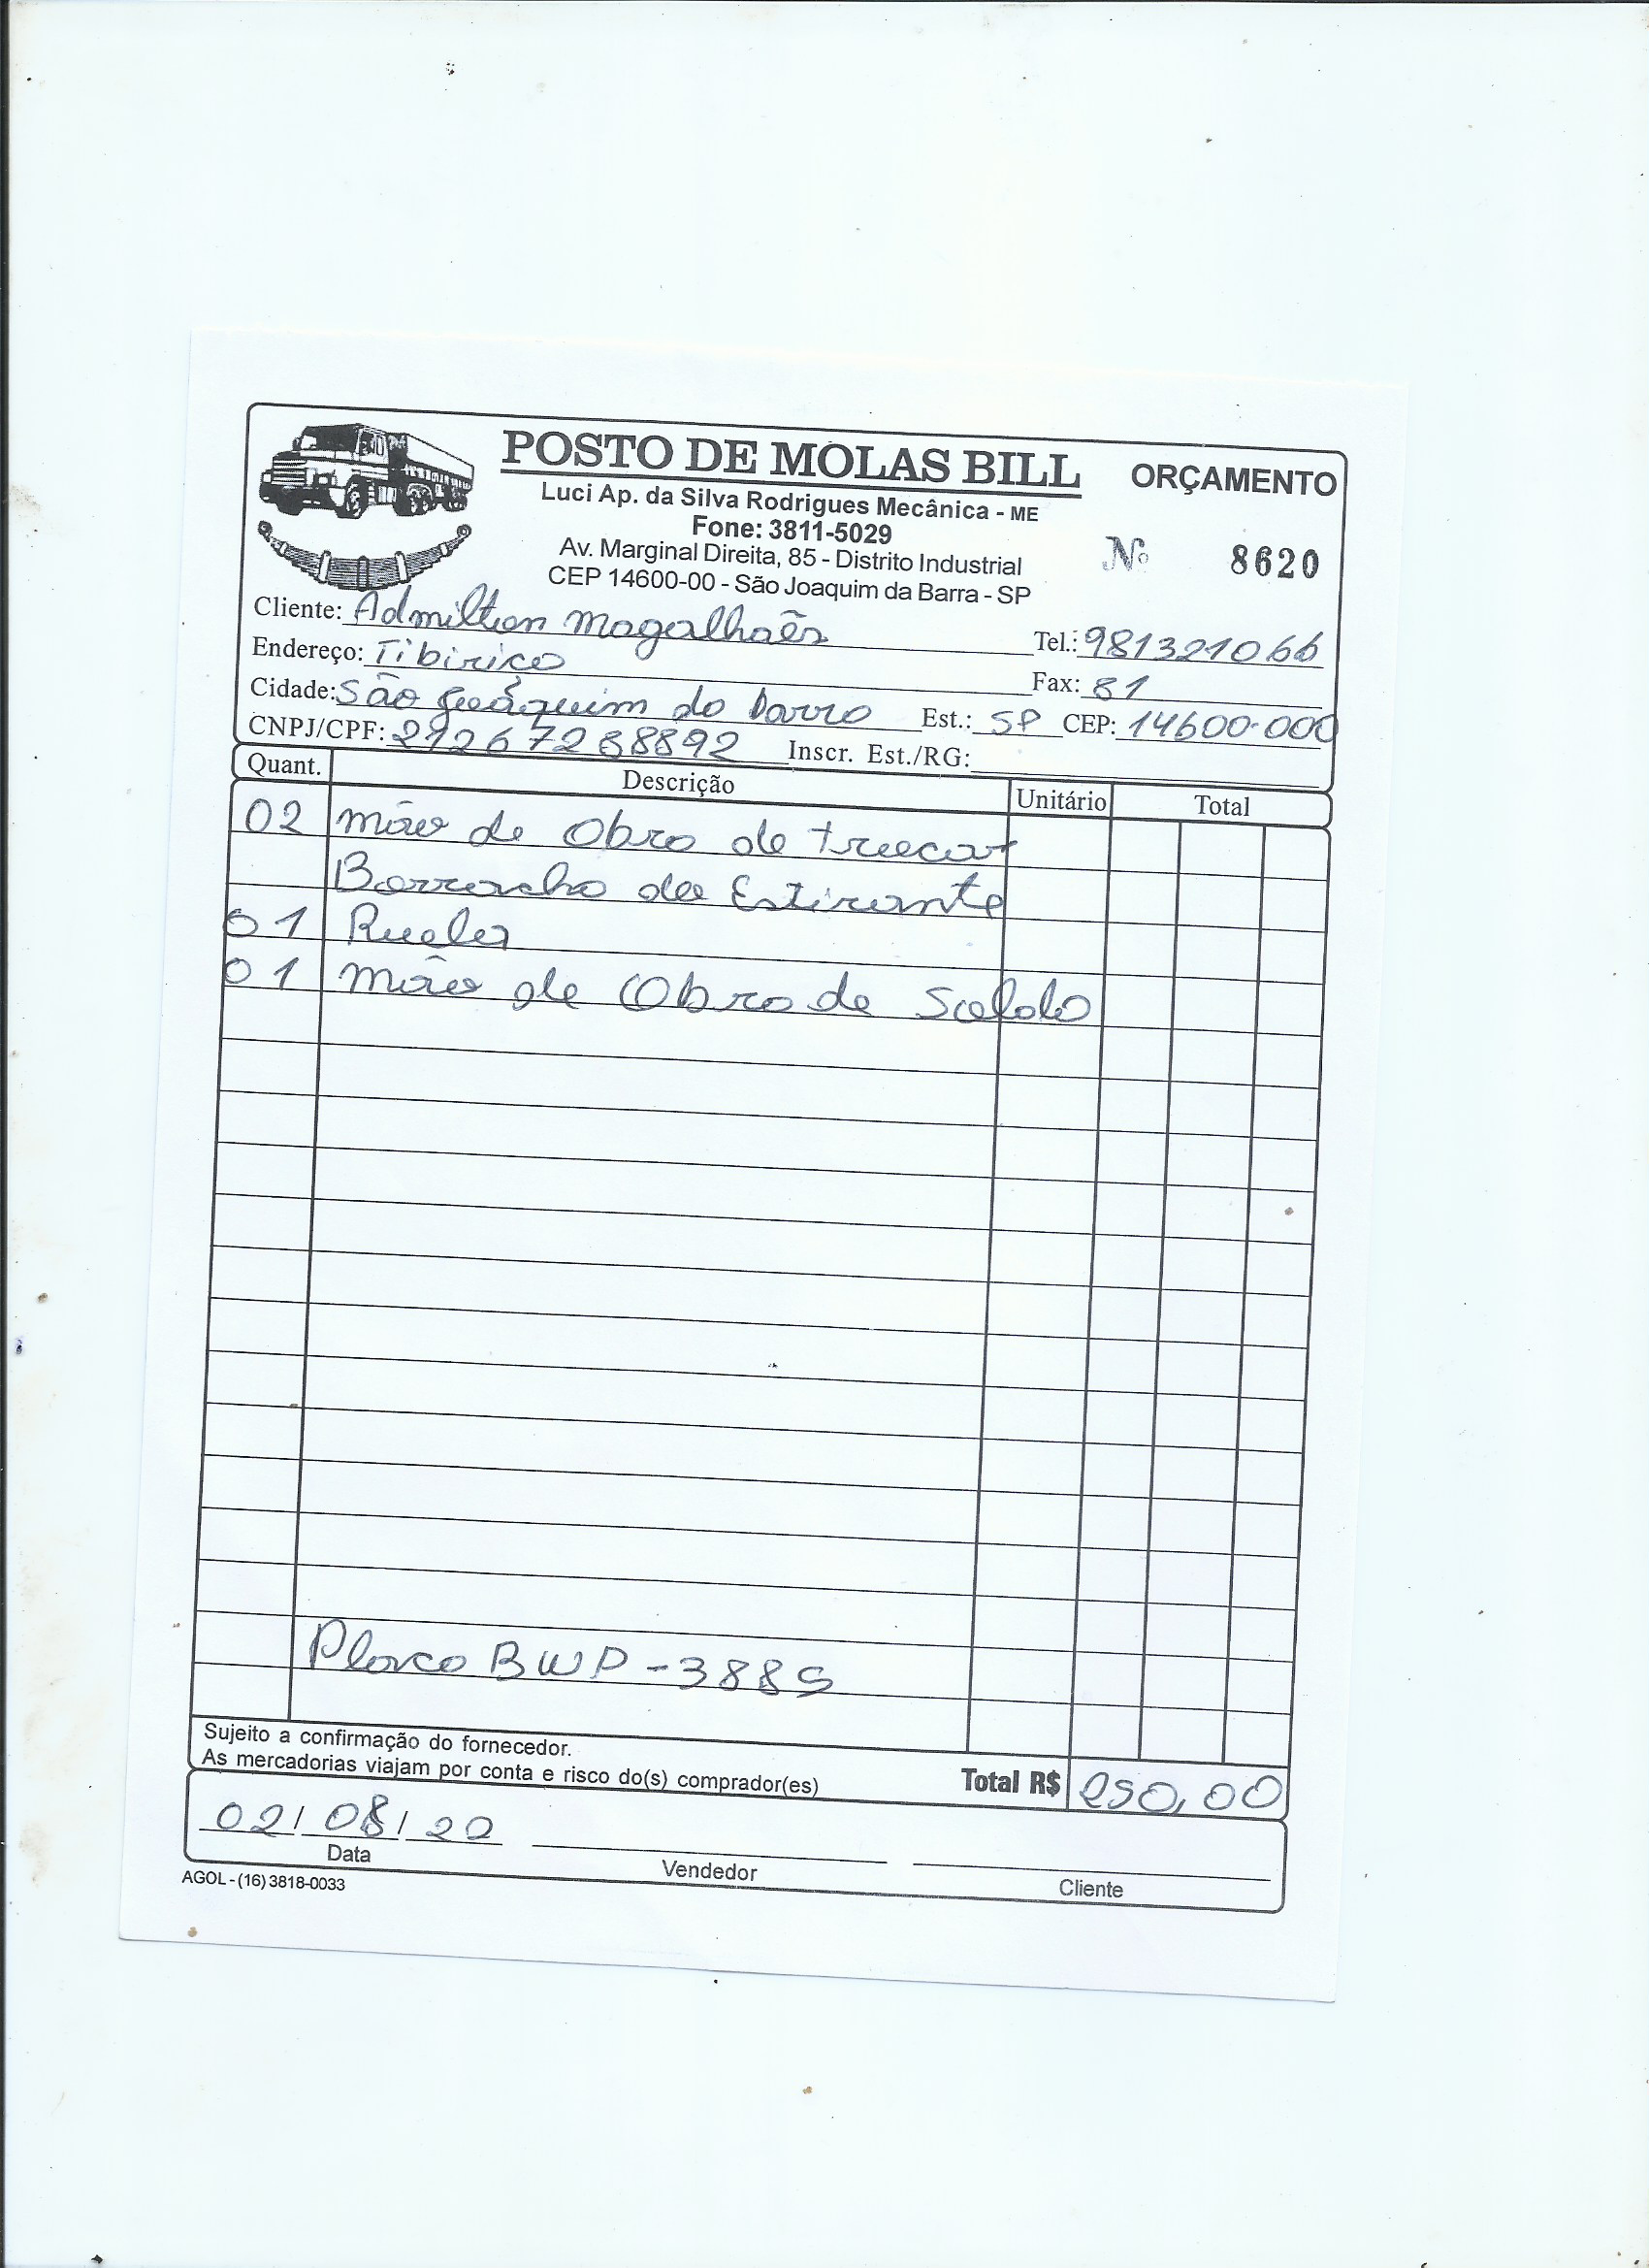 POSTO DE MOLAS BILL
ORÇAMENTO
Luci Ap. da Silva Rodrigues Mecânica - ME
Fone: 3811-5029
Av. Marginal Direita, 85 - Distrito Industrial
Nº 8620
CEP 14600-00 - São Joaquim da Barra - SP
Cliente: Admilton Magalhães Tel.: 981321066
Endereço: Tibiriça Fax: 81
Cidade: São Joaquim da barra Est.: SP CEP: 14600-000
CNPJ/CPF: 21267288892 Inscr. Est./RG:
Quant. Descrição Unitário Total
02 mão de Obra de trocar
Borracha de Estirante
01
01 mão de Obra de Solda
Placa BWP-3885
Sujeito a confirmação do fornecedor.
As mercadorias viajam por conta e risco do(s) comprador(es) Total R$ 250,00
02/08/20
Data Vendedor Cliente
AGOL - (16) 3818-0033